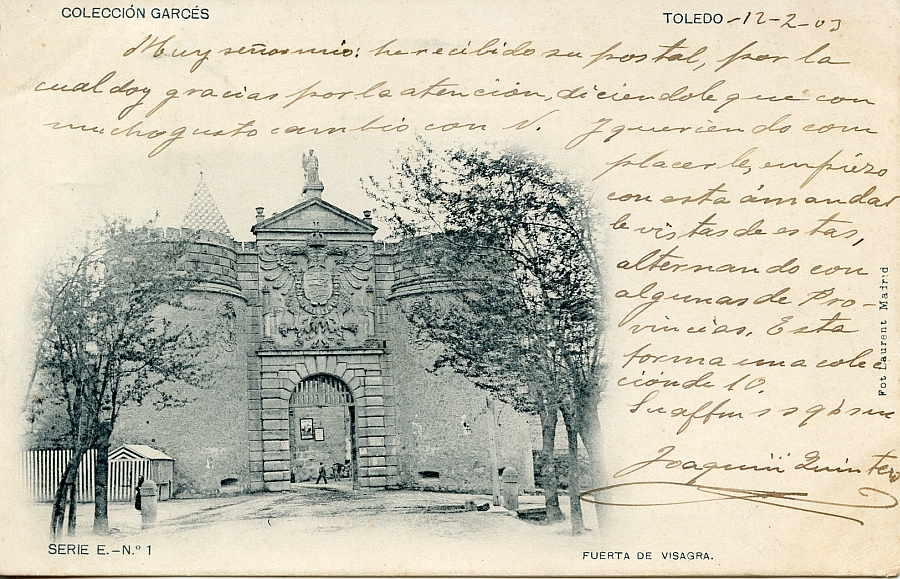 COLECCIÓN GARCÉS
TOLEDO - 12-2-03
Muy señor mio: he recibido su postal, por la
cual doy gracias por la atención, diciendole que con
mucho gusto cambio con V. Y queriendo com
placerle, empiezo
con esta á mandar
le vistas de estas,
alternando con
algunas de Pro-
vincias. Esta
forma una colec
ción de 10.
Su affmo s s q b s m
Joaquin Quintero
Fot Laurent Madrid
SERIE E.-N.º 1
FUERTA DE VISAGRA.